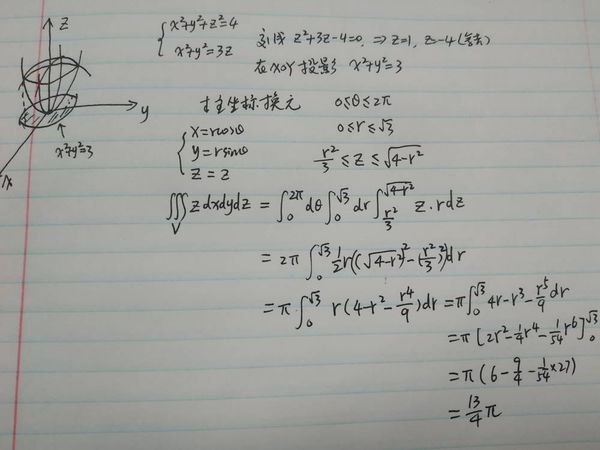 z
y
x
x²+y²=3
{ x²+y²+z²=4
x²+y²=3z
z²+3z-4=0, ⇒ z=1, z=-4(舍去)
在xoy投影 x²+y²=3
柱坐标换元 0≤θ≤2π
{ x=rcosθ 0≤r≤√3
y=rsinθ
z=z r²/3 ≤ z ≤ √(4-r²)
∭_V zdxdydz = ∫_0^{2π} dθ ∫_0^{√3} dr ∫_{r²/3}^{√(4-r²)} z·rdz
= 2π ∫_0^{√3} ½r((√(4-r²))²-(r²/3)²)dr
= π ∫_0^{√3} r(4-r²-r⁴/9)dr = π∫_0^{√3} 4r-r³-r⁵/9 dr
= π[2r²-¼r⁴-1/54 r⁶]_0^{√3}
= π(6-9/4-1/54×27)
= 13/4 π